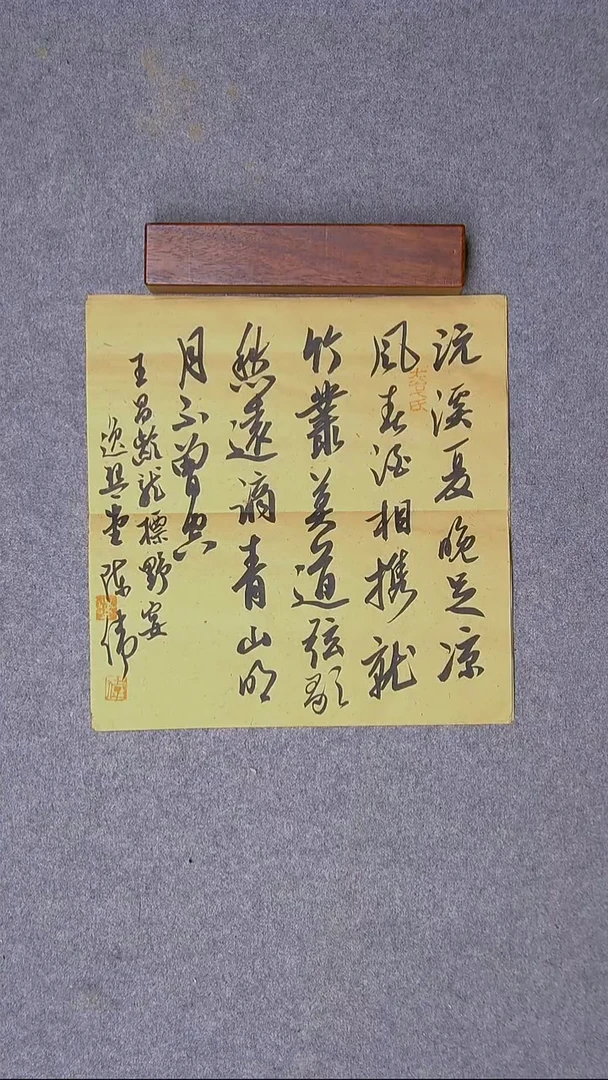 沅溪夏晚足凉
风春酒相携就
竹叢莫道弦歌
愁遠谪青山明
月不曾空
王昌龄龙標野宴
逸堂陈伟